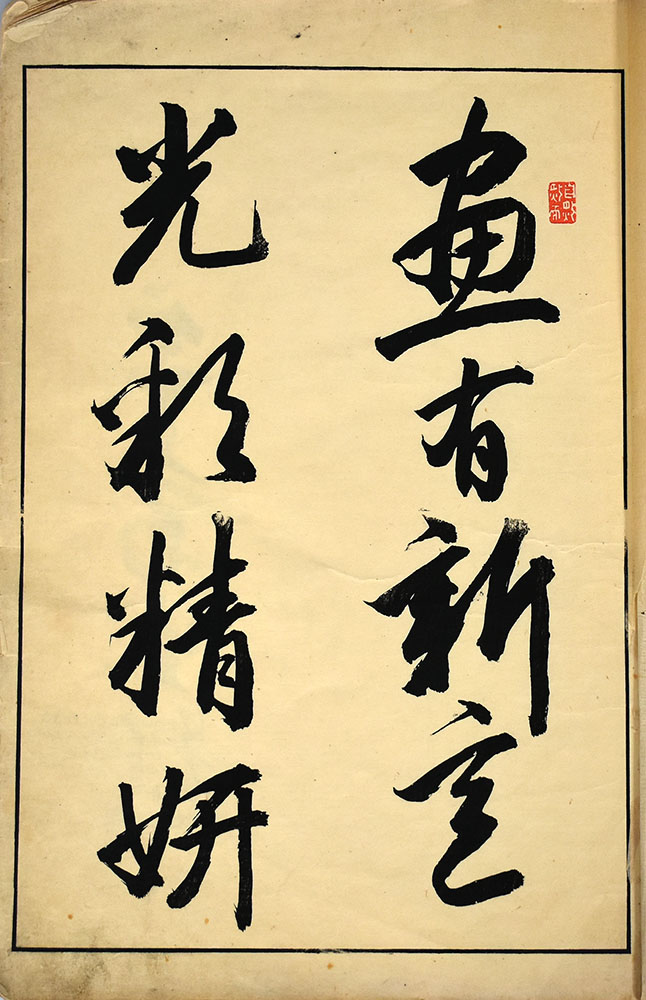 畫有新意
光彩精妍